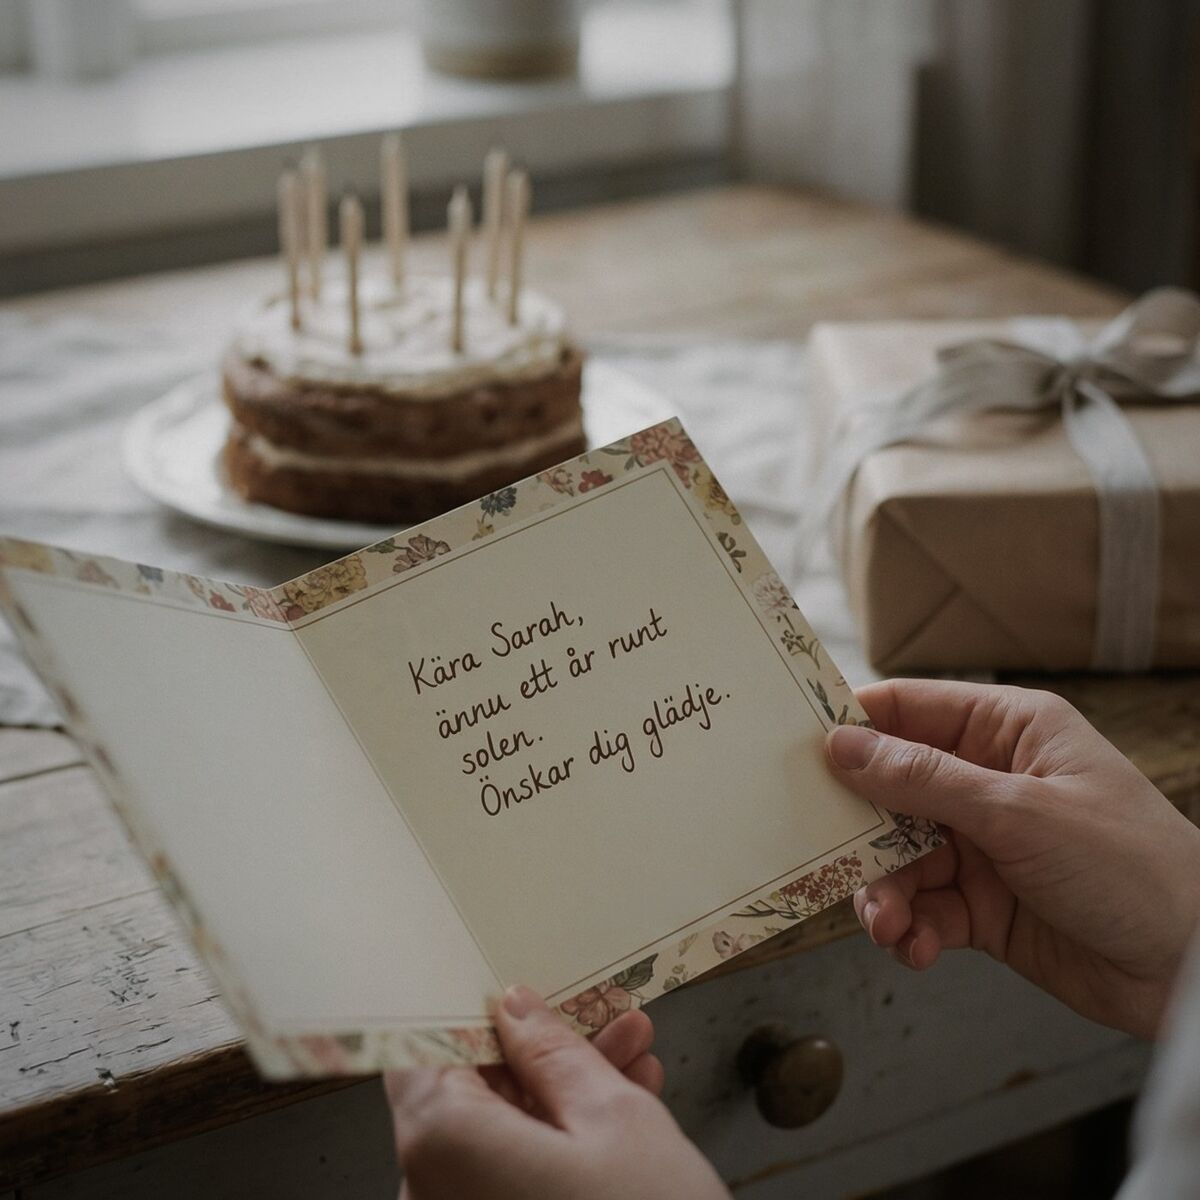 Kära Sarah,
ännu ett år runt
solen.
Önskar dig glädje.